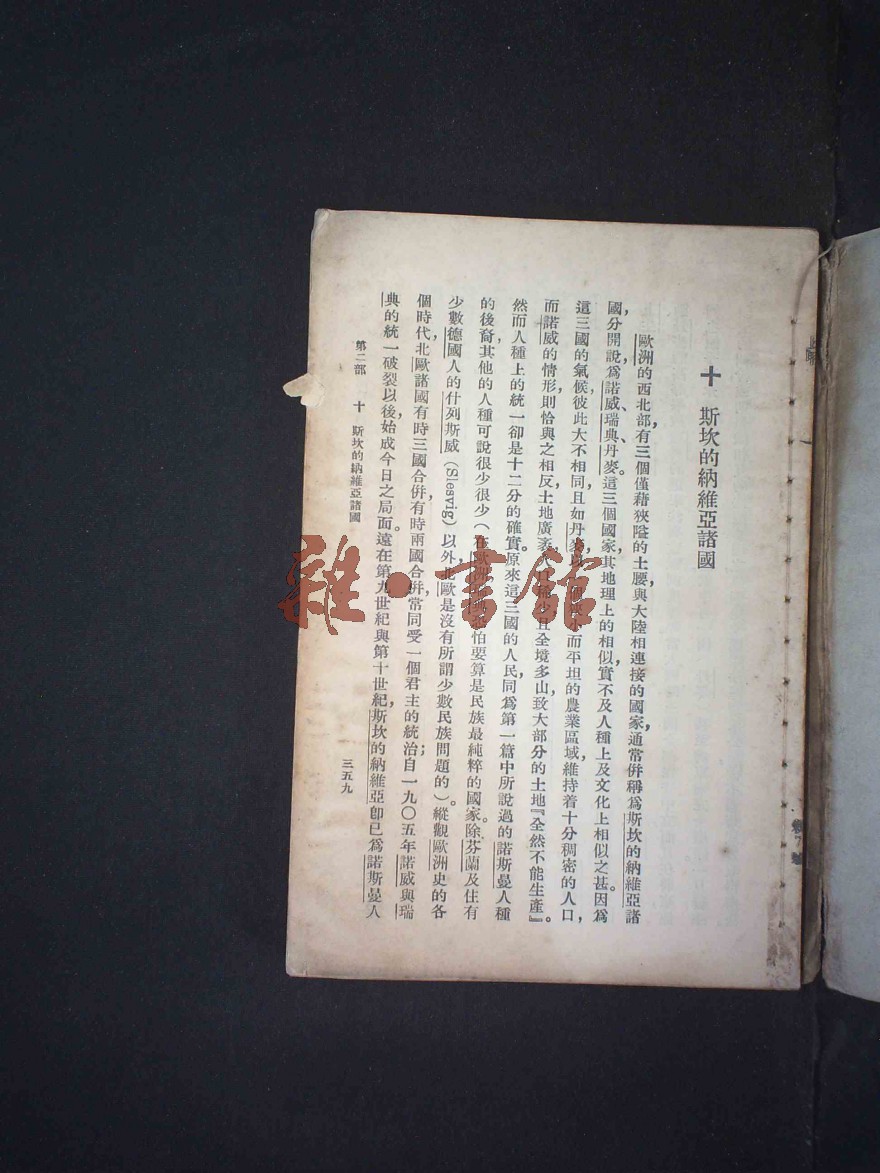 十 斯坎的納維亞諸國
歐洲的西北部,有三個僅藉狹隘的土腰與大陸相連接的國家,通常併稱爲斯坎的納維亞諸
國,分開說爲諾威、瑞典、丹麥。這三個國家,其地理上的相似,實不及人種上及文化上相似之甚。因爲
這三國的氣候,彼此大不相同,且如丹麥以一個狹小而平坦的農業區域,維持着十分稠密的人口,
而諾威的情形,則恰與之相反,土地廣袤,人口稀少,且全境多山,致大部分的土地『全然不能生產』。
然而人種上的統一卻是十二分的確實。原來這三國的人民,同爲第一篇中所說過的諾斯曼人種
的後裔,其他的人種可說很少很少(在歐洲瑞典恐怕要算是民族最純粹的國家。除芬蘭及住有
少數德國人的什列斯威(Slesvig)以外,北歐是沒有所謂少數民族問題的)。縱觀歐洲史的各
個時代,北歐諸國有時三國合併,有時兩國合併,常同受一個君主的統治;自一九〇五年諾威與瑞
典的統一破裂以後,始成今日之局面。遠在第九世紀與第十世紀,斯坎的納維亞卽已爲諾斯曼人
第二部 十 斯坎的納維亞諸國
三五九
雜·書館